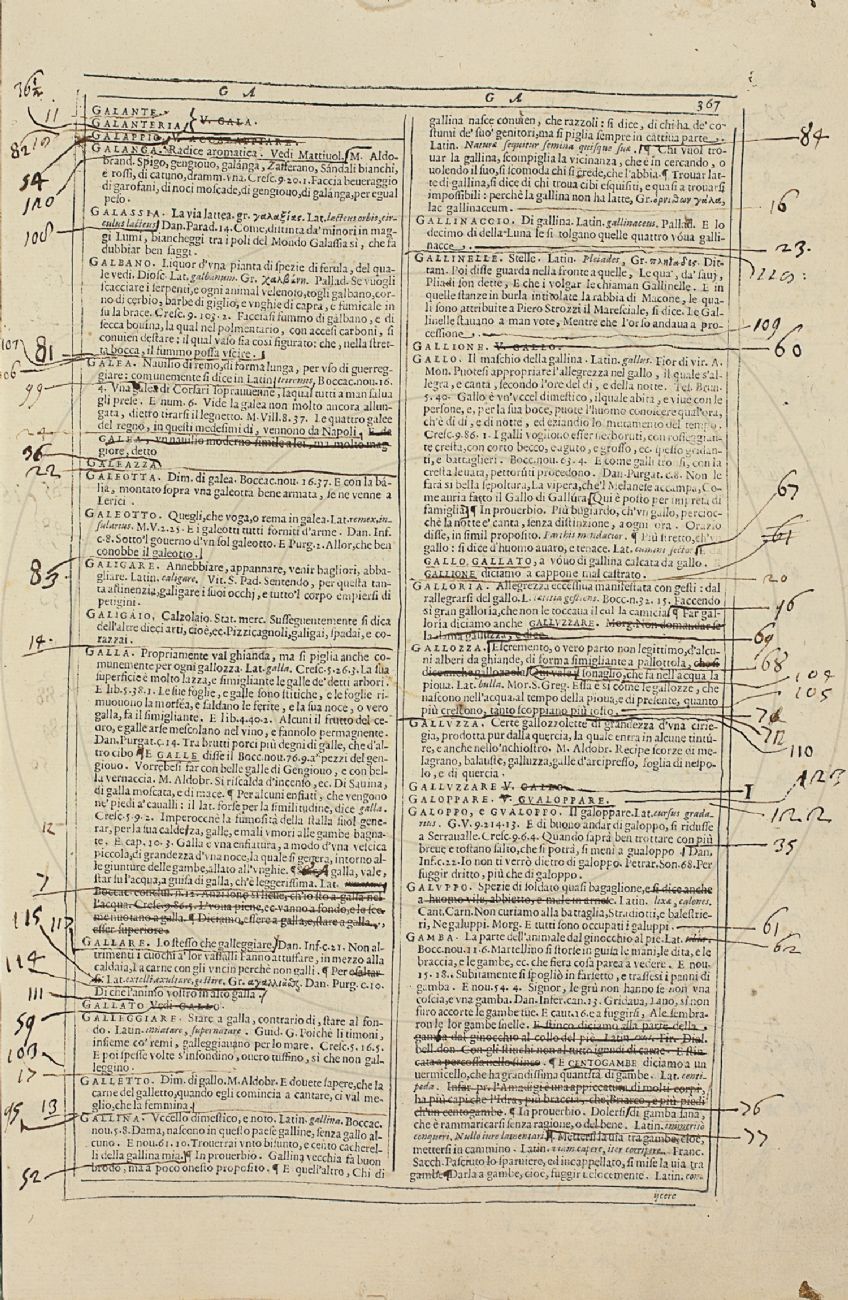 G A
G A
367
GALANTE.
GALANTERIA
V. GALA.
GALAPPIO,
GALANGA. Radice aromatica. Vedi Mattiuol. M. Aldo-
brand. Spigo, gengiouo, galanga, Zafferano, Sandali bianchi,
e rossi, di catuno, dramm. vna. Cresc. 9. 20. 1. Faccia beueraggio
di garofani, di noci moscade, di gengiouo, di galanga, per egual
peso.
GALASSIA. La via lattea. gr. γαλαξίας. Lat. lacteus orbis, cir-
culus lacteus. Dan. Parad. 14. Come, distinta da' minori in mag-
gi Lumi, biancheggi tra i poli del Mondo Galassia sì, che fa
dubbiar ben saggi.
GALBANO. Liquor d'vna pianta di spezie di ferula, del qua-
le vedi. Diosc. Lat. galbanum. Gr. χαλβάνη. Pallad. Se vuogli
scacciare i serpenti, e ogni animal velenoso, togli galbano, cor-
no di cerbio, barbe di giglio, e vnghie di capra, e fumicale in
su la brace. Cresc. 9. 103. 2. Facciasi fummo di galbano, e di
secca bouina, la qual nel polmentario, con accesi carboni, si
conuien destare: il qual vaso sia così figurato: che, nella stret-
ta bocca, il fummo possa vscire.
GALEA. Nauilio di remo, di forma lunga, per vso di guerreg-
giare: comunemente si dice in Latin triremis. Boccac. nou. 16.
4. Vna galea di Corsari soprauuenne, laqual tutti a man salua
gli prese. E num. 6. Vide la galea non molto ancora allun-
gata, dietro tirarsi il legnetto. M. Vill. 8. 37. Le quattro galee
del regno, in questi medesimi dì, vennono da Napoli. E da
GALEA, vn nauilio moderno simile a lei, ma molto mag-
giore, detto
GALEAZZA
GALEOTTA. Dim. di galea. Boccac. nou. 16. 37. E con la bá-
lia, montato sopra vna galeotta bene armata, se ne venne a
Lerici.
GALEOTTO. Quegli, che voga, o rema in galea. Lat. remex, in-
sularius. M. V. 2. 25. E i galeotti tutti forniti d'arme. Dan. Inf.
c. 8. Sotto'l gouerno d'vn sol galeotto. E Purg. 2. Allor, che ben
conobbe il galeotto.
GALIGARE. Annebbiare, appannare, venir bagliori, abba-
gliare. Latin. caligare. Vit. S. Pad. Sentendo, per questa tan-
ta astinenzia, galigare i suoi occhj, e tutto'l corpo empiersi di
petigini.
GALIGAIO, Calzolaio. Stat. merc. Susseguentemente si dica
dell'altre dieci arti, cioè, ec. Pizzicagnoli, galigai, spadai, e co-
razzai.
GALLA. Propriamente val ghianda, ma si piglia anche co-
munemente per ogni gallozza. Lat. galla. Cresc. 5. 26. 3. La sua
superficie è molto lazza, e simigliante le galle de' detti arbori.
E lib. 5. 38. 1. Le sue foglie, e galle sono stitiche, e le foglie ri-
muouono la morfea, e saldano le ferite, e la sua noce, o vero
galla, fa il simigliante. E lib. 4. 40. 2. Alcuni il frutto del ce-
dro, e galle arse mescolano nel vino, e fannolo permagnente.
Dan. Purgat. c. 14. Tra brutti porci più degni di galle, che d'al-
tro cibo ¶ E GALLE disse il Bocc. nou. 76. 9. a' pezzi del gen-
giouo. Vorrebesi far con belle galle di Gengiouo, e con bel-
la vernaccia. M. Aldobr. Si riscalda d'incenso, ec. Di Sauina,
di galla moscata, e di mace. ¶ Per alcuni enfiati, che vengono
ne' piedi a' caualli: il lat. forse per la similitudine, dice galla.
Cresc. 5. 9. 2. Imperocchè la fumosità della stalla suol gene-
rar, per la sua caldezza, galle, e mali vmori alle gambe bagna-
te. E cap. 10. 3. Galla è vna enfiatura, a modo d'vna vescica
piccola, di grandezza d'vna noce, la quale si genera, intorno al-
le giunture delle gambe, allato all'vnghie. ¶ galla, vale,
star su l'acqua, a guisa di galla, ch'è leggerissima. Lat.
esser superiore.
GALLARE. Lo stesso che galleggiare. Dan. Inf. c. 21. Non al-
trimenti i cuochi a' lor vassalli Fanno attuffare, in mezzo alla
caldaia, La carne con gli vncin perchè non galli. ¶ Per esaltar-
si. Lat. extolli, exultare, gestire. Gr. ἀγαλλιᾶν. Dan. Purg. c. 10.
Di che l'animo vostro in alto galla.
GALLATO Vedi GALLO.
GALLEGGIARE. Stare a galla, contrario di, stare al fon-
do. Latin. innatare, supernatare. Guid. G. Poichè li timoni,
insieme co' remi, galleggiauano per lo mare. Cresc. 5. 16. 5.
E poi spesse volte s'infondino, ouero tuffino, sì che non gal-
leggino.
GALLETTO. Dim. di gallo. M. Aldobr. E douete sapere, che la
carne del galletto, quando egli comincia a cantare, ci val me-
glio, che la femmina.
GALLINA. Vccello dimestico, e noto. Latin. gallina. Boccac.
nou. 5. 8. Dama, nascono in questo paese galline, senza gallo al-
cuno. E nou. 61. 10. Trouerai vnto bisunto, e cento cacherel-
li della gallina mia. ¶ In prouerbio. Gallina vecchia fa buon
brodo, ma a poco onesto proposito. ¶ E quell'altro, Chi di
gallina nasce conuien, che razzoli: si dice, di chi ha de' co-
stumi de' suo' genitori, ma si piglia sempre in cattiua parte.
Latin. Natura sequitur semina quisque suae. ¶ Chi vuol tro-
uar la gallina, scompiglia la vicinanza, che è in cercando, o
uolendo il suo, si scomoda chi si crede, che l'abbia. ¶ Trouar lat-
te di gallina, si dice di chi troua cibi esquisiti, e quasi a trouarsi
impossibili: perchè la gallina non ha latte, Gr. ὀρνίθων γάλα,
lac gallinaceum.
GALLINACCIO. Di gallina. Latin. gallinaceus. Pallad. E lo
decimo dì della Luna le si tolgano quelle quattro vóua galli-
nacce.
GALLINELLE. Stelle. Latin. Pleiades, Gr. πλειάδες. Dit-
tam. Poi disse guarda nella fronte a quelle, Le qua', da' sauj,
Pliadi son dette, E che i volgar le chiaman Gallinelle. E in
quelle stanze in burla intitolate la rabbia di Macone, le qua-
li sono attribuite a Piero Strozzi il Maresciale, si dice. Le Gal-
linelle stauano a man vote, Mentre che l'orso andaua a pro-
cessione.
GALLIONE. V. GALLO.
GALLO. Il maschio della gallina. Latin. gallus. Fior di vir. A.
Mon. Puotesi appropriare l'allegrezza nel gallo, il quale s'al-
legra, e canta, secondo l'ore del dì, e della notte. Tes. Brun.
5. 40. Gallo è vn'vccel dimestico, ilquale abita, e viue con le
persone, e, per la sua boce, puote l'huomo conoscere qual'ora,
ch'è di dì, e di notte, ed eziandio lo mutamento del tempo.
Cresc. 9. 86. 1. I galli vogliono esser nerboruti, con rosseggian-
te cresta, con corto becco, e aguto, e grosso, ec. spesso gridan-
ti, e battaglieri. Bocc. nou. 63. 4. E come galli tronfj, con la
cresta leuata, pettoruti procedono. Dan. Purgat. c. 8. Non le
farà sì bella sepoltura, La vipera, che'l Melanese accampa, Co-
me auria fatto il Gallo di Gallura, Qui è posto per impresa di
famiglia ¶ In prouerbio. Più bugiardo, ch'vn gallo, percioc-
chè la notte e' canta, senza distinzione, a ogni ora. Orazio
disse, in simil proposito. Parthis mendacior. ¶ Più stretto, ch'vn
gallo: si dice d'huomo auaro, e tenace. Lat. cumini sector
GALLO, GALLATO, a vóuo di gallina calcata da gallo.
GALLIONE diciamo a cappone mal castrato.
GALLORIA. Allegrezza eccessiua manifestata con gesti: dal
rallegrarsi del gallo. L. laetitia gestiens. Bocc. n. 32. 15. Faccendo
sì gran galloria, che non le toccaua il cul la camicia. ¶ Far gal-
loria diciamo anche GALLVZZARE. Morg. Non domandar se
la dama galluzza, e dice.
GALLOZZA. Escremento, o vero parto non legittimo, d'alcu-
ni alberi da ghiande, di forma simigliante a pallottola,
Qui vale sonaglio, che fa nell'acqua la
pioua. Lat. bulla. Mor. S. Greg. Essa è sì come le gallozze, che
nascono nell'acqua al tempo della pioua, e di presente, quanto
più crescono, tanto scoppiano più tosto.
GALLVZZA. Certe gallozzolette di grandezza d'vna cirie-
gia, prodotta pur dalla quercia, la quale entra in alcune tintu-
re, e anche nello'nchiostro. M. Aldobr. Recipe scorze di me-
lagrano, balauste, galluzza, galle d'arcipresso, foglia di nespo-
lo, e di quercia.
GALLVZZARE V. GALLO.
GALOPPARE. V. GVALOPPARE.
GALOPPO, e GVALOPPO. Il galoppare. Lat. cursus grada-
rius. G. V. 9. 214. 13. E di buono andar di galoppo, si ridusse
a Serraualle. Cresc. 9. 6. 4. Quando saprà ben trottare con più
breue e tostano salto, che si potrà, si meni a gualoppo. Dan.
Inf. c. 22. Io non ti verrò dietro di galoppo. Petrar. Son. 68. Per
fuggir dritto, più che di galoppo.
GALVPPO. Spezie di soldato quasi bagaglione, e si dice anche
a huomo vile, abbietto, e male in arnese. Latin. lixa, calones.
Cant. Carn. Non curiamo alla battaglia, Stradiotti, e balestrie-
ri, Ne galuppi. Morg. E tutti sono occupati i galuppi.
GAMBA. La parte dell'annale dal ginocchio al piè. Lat.
Bocc. nou. 11. 6. Martellino si storse in guisa le mani, le dita, e le
braccia, e le gambe, ec. che fiera cosa pareà a vedere. E nou.
15. 18. Subitamente si spogliò in farsetto, e trassesi i panni di
gamba. E nou. 54. 4. Signor, le grù non hanno se non vna
coscia, e vna gamba. Dan. Infer. can. 13. Gridaua, Lano, sì non
furo accorte le gambe tue. E cant. 16. e a fuggirsi, Ale sembra-
ron le lor gambe snelle. E stinco diciamo alla parte della
gamba dal ginocchio al collo del piè.
¶ E CENTOGAMBE diciamo a un
vermicello, che ha grandissima quantità di gambe. Lat. centi-
peda.
ch'un centogambe. ¶ In prouerbio. Dolersi di gamba sana,
che è rammaricarsi senza ragione, o del bene. Latin. immerito
conqueri, Nullo iure lamentari. ¶ Mettersi la uia tra gambe, cioè,
mettersi in cammino. Latin. viam capere, iter corripere. Franc.
Sacch. Pasciuto lo sparuiere, ed incappellato, si mise la uia tra
gambe. ¶ Darla a gambe, cioè, fuggir uelocemente. Latin. con-
ijcere
11
82
54
110
108
81
99
36
22
83
14
12
7
115
117
114
111
59
103
17
95
13
52
84
16
23
109
60
67
20
96
69
68
104
105
72
110
123
122
35
61
62
76
77